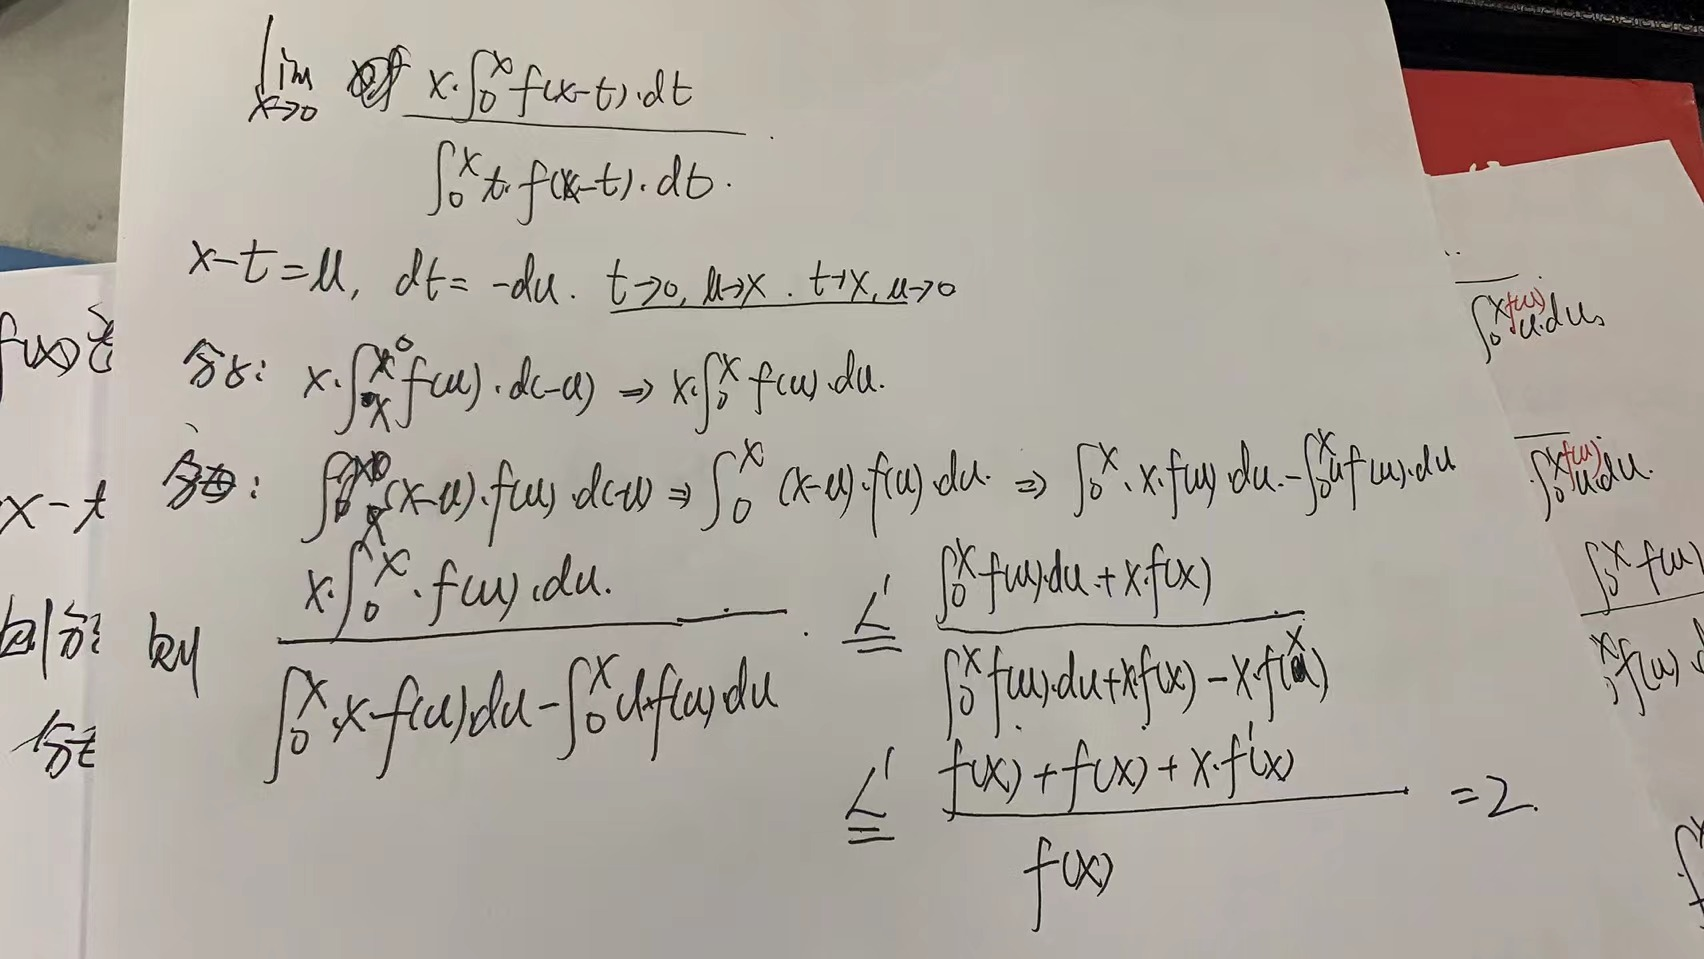 lim x→0 x·∫₀ˣ f(x-t)·dt / ∫₀ˣ t·f(x-t)·dt.
x-t=u, dt=-du. t→0, u→x. t→x, u→0
分子: x·∫ₓ⁰ f(u)·d(-u) ⇒ x·∫₀ˣ f(u)·du.
分母: ∫ₓ⁰ (x-u)·f(u)·d(-u) ⇒ ∫₀ˣ (x-u)·f(u)·du. ⇒ ∫₀ˣ·x·f(u)·du.-∫₀ˣ u f(u)·du
x·∫₀ˣ·f(u)·du. / ∫₀ˣ·x·f(u)du-∫₀ˣ u·f(u)du L' = ∫₀ˣ f(u)·du+x·f(x) / ∫₀ˣ f(u)·du+x·f(x)-x·f(x)
L' = f(x)+f(x)+x·f'(x) / f(x) =2.
f(x)
x-t
∫₀ˣ f(u) u·du
∫₀ˣ f(u) u·du.
∫₀ˣ f(u)